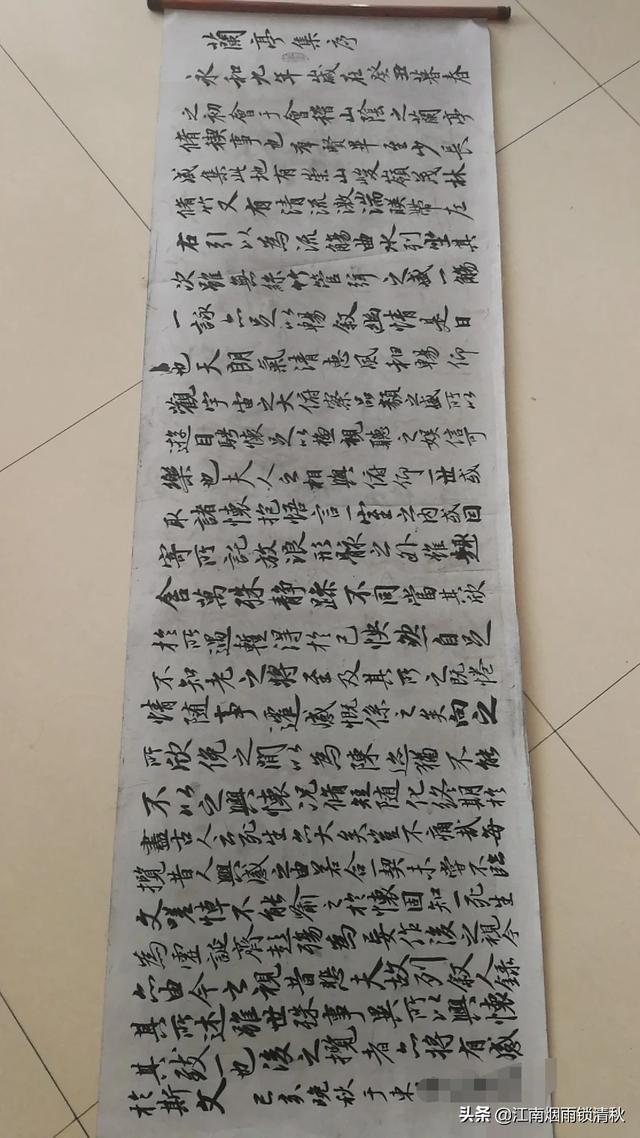 蘭亭集序
永和九年歲在癸丑暮春
之初會于會稽山陰之蘭亭
脩禊事也羣賢畢至少長
咸集此地有崇山峻嶺茂林
脩竹又有清流激湍暎帶左
右引以為流觴曲水列坐其
次雖無絲竹管弦之盛一觴
一詠亦足以暢敘幽情是日
也天朗氣清惠風和暢仰
觀宇宙之大俯察品類之盛所以
遊目騁懷足以極視聽之娛信可
樂也夫人之相與俯仰一世或
取諸懷抱悟言一室之內或因
寄所託放浪形骸之外雖趣
舍萬殊静躁不同當其欣
於所遇暫得於己怏然自足
不知老之將至及其所之既惓
情随事遷感慨係之矣向之
所欣俛之間以為陳迹猶不能
不以之興懷況脩短随化終期於
盡古人云死生亦大矣豈不痛哉每
攬昔人興感之由若合一契未嘗不臨
文嗟悼不能喻之於懷固知一死生
為虛誕齊彭殤為妄作後之視今
亦由今之視昔悲夫故列敘人錄
其所述雖世殊事異所以興懷
其致一也後之攬者亦將有感
於斯文 己亥晚秋于東
头条 @江南烟雨锁清秋